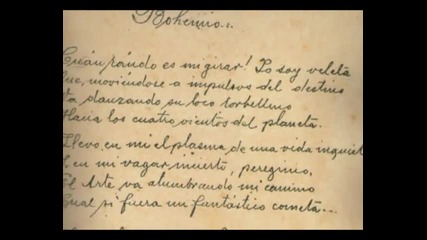 Bohemio...
Cuán rándo es mi girar! Yo soy veleta
que, moviéndose a impulsos del destino
va danzando su loco torbellino
Hacia los cuatro vientos del planeta.
Llevo en mi el plasma de una vida inquieta
I en mi vagar incierto, peregrino,
El Arte va alumbrando mi camino
Cual si fuera un fantástico cometa...